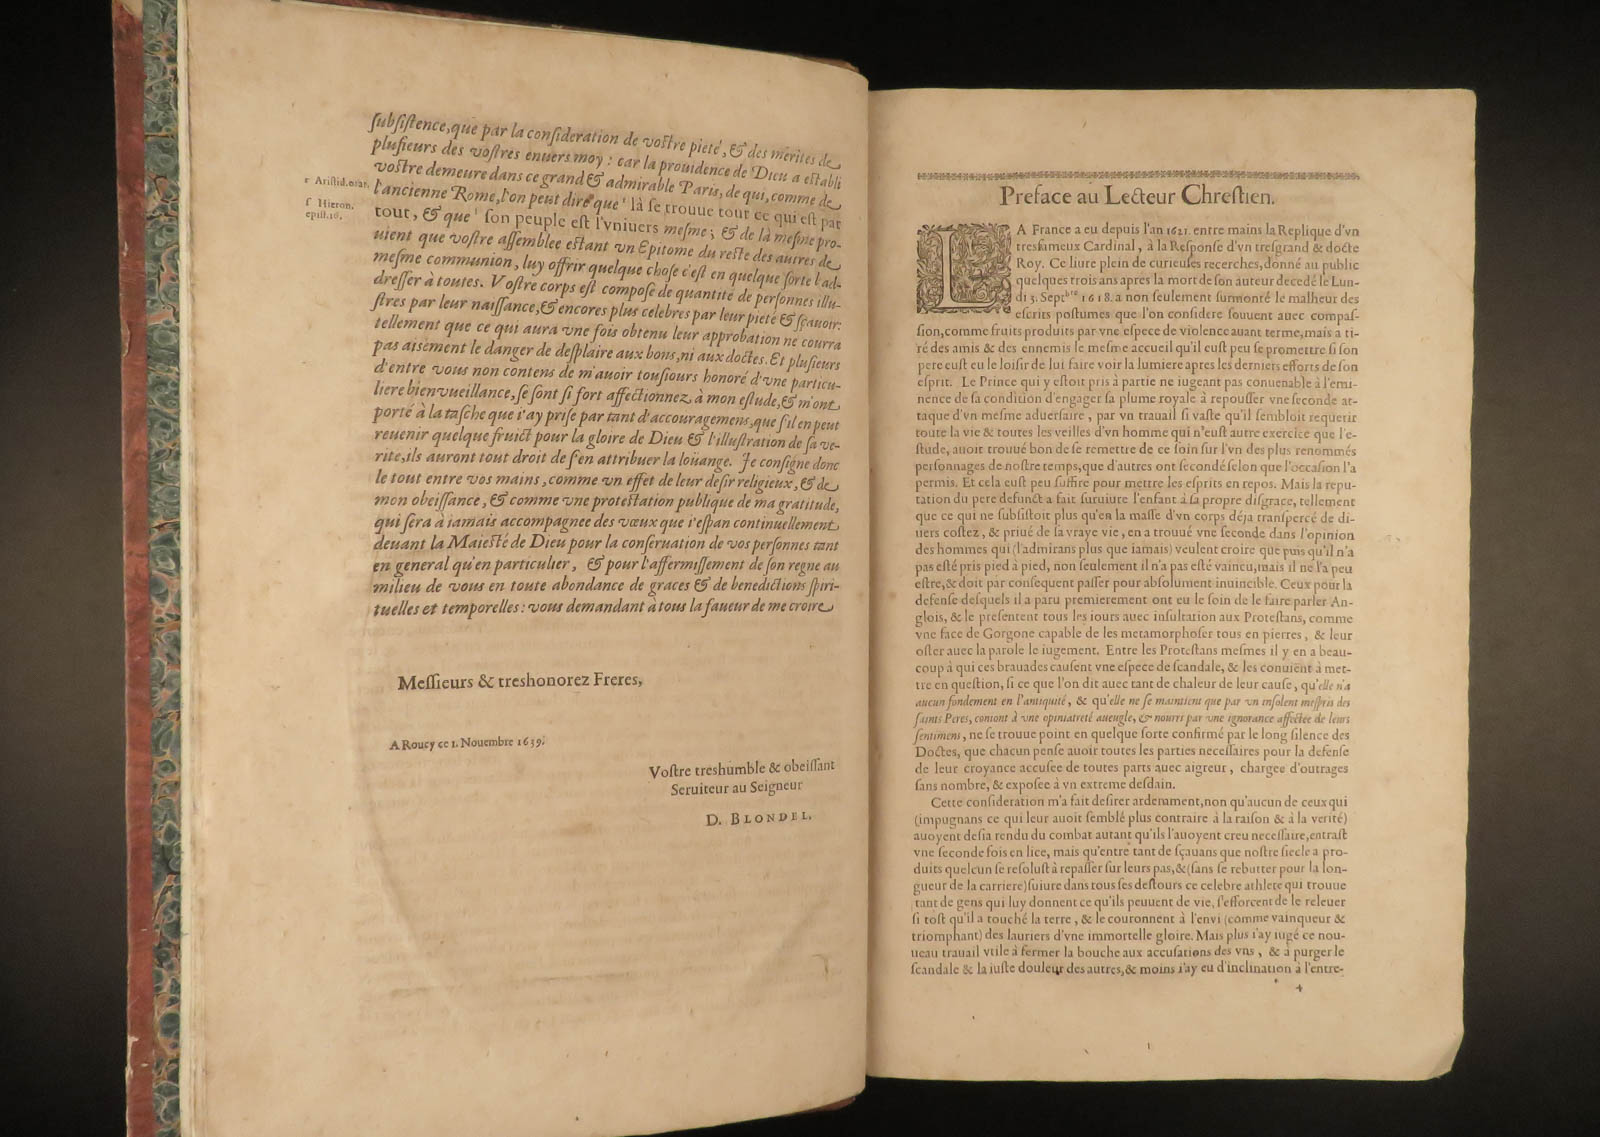 subsistence, que par la consideration de vostre pieté, & des merites de
plusieurs des vostres enuers moy: car la prouidence de Dieu a establi
vostre demeure dans ce grand & admirable Paris, de qui, comme de
r Aristid. orat.
l'ancienne Rome, l'on peut dire que r là se trouue tout ce qui est par
ſ Hieron.
epist. 16.
tout, & que ſ son peuple est l'vniuers mesme; & de là mesme pro-
uient que vostre assemblee estant vn Epitome du reste des autres de
mesme communion, luy offrir quelque chose c'est en quelque sorte l'ad-
dresser à toutes. Vostre corps est composé de quantité de personnes illu-
stres par leur naissance, & encores plus celebres par leur pieté & sçauoir:
tellement que ce qui aura vne fois obtenu leur approbation ne courra
pas aisement le danger de desplaire aux bons, ni aux doctes. Et plusieurs
d'entre vous non contens de m'auoir tousiours honoré d'vne particu-
liere bienvueillance, se sont si fort affectionnez à mon estude, & m'ont
porté à la tasche que i'ay prise par tant d'accouragemens, que s'il en peut
reuenir quelque fruict pour la gloire de Dieu & l'illustration de sa ve-
rité, ils auront tout droit de s'en attribuer la loüange. Je consigne donc
le tout entre vos mains, comme vn effet de leur desir religieux, & de
mon obeissance, & comme vne protestation publique de ma gratitude,
qui sera à iamais accompagnee des vœux que i'espan continuellement
deuant la Maiesté de Dieu pour la conseruation de vos personnes tant
en general qu'en particulier, & pour l'affermissement de son regne au
milieu de vous en toute abondance de graces & de benedictions spiri-
tuelles et temporelles: vous demandant à tous la faueur de me croire
Messieurs & treshonorez Freres,
A Roucy ce 1. Nouembre 1639.
Vostre treshumble & obeissant
Seruiteur au Seigneur
D. BLONDEL.
Preface au Lecteur Chrestien.
LA France a eu depuis l'an 1621. entre mains la Replique d'vn
tresfameux Cardinal, à la Response d'vn tresgrand & docte
Roy. Ce liure plein de curieuses recerches, donné au public
quelques trois ans après la mort de son auteur decedé le Lun-
di 3. Septbre 1618. a non seulement surmonté le malheur des
escrits postumes que l'on considere souuent auec compas-
sion, comme fruits produits par vne espece de violence auant terme, mais a ti-
ré des amis & des ennemis le mesme accueil qu'il eust peu se promettre si son
pere eust eu le loisir de lui faire voir la lumiere apres les derniers efforts de son
esprit. Le Prince qui y estoit pris à partie ne iugeant pas conuenable à l'emi-
nence de sa condition d'engager sa plume royale à repousser vne seconde at-
taque d'vn mesme aduersaire, par vn trauail si vaste qu'il sembloit requerir
toute la vie & toutes les veilles d'vn homme qui n'eust autre exercice que l'e-
stude, auoit trouué bon de se remettre de ce soin sur l'vn des plus renommés
personnages de nostre temps, que d'autres ont secondé selon que l'occasion l'a
permis. Et cela eust peu suffire pour mettre les esprits en repos. Mais la repu-
tation du pere defunct a fait suruiure l'enfant à sa propre disgrace, tellement
que ce qui ne subsistoit plus qu'en la masse d'vn corps déja transpercé de di-
uers costez, & priué de la vraye vie, en a trouué vne seconde dans l'opinion
des hommes qui (l'admirans plus que iamais) veulent croire que puis qu'il n'a
pas esté pris pied à pied, non seulement il n'a pas esté vaincu, mais il ne l'a peu
estre, & doit par consequent passer pour absolument inuincible. Ceux pour la
defense desquels il a paru premierement ont eu le soin de le faire parler An-
glois, & le presentent tous les iours auec insultation aux Protestans, comme
vne face de Gorgone capable de les metamorphoser tous en pierres, & leur
oster auec la parole le iugement. Entre les Protestans mesmes il y en a beau-
coup à qui ces brauades causent vne espece de scandale, & les conuient à met-
tre en question, si ce que l'on dit auec tant de chaleur de leur cause, qu'elle n'a
aucun fondement en l'antiquité, & qu'elle ne se maintient que par vn insolent mespris des
saints Peres, conioint à vne opiniatreté aueugle, & nourri par vne ignorance affectée de leurs
sentimens, ne se trouue point en quelque sorte confirmé par le long silence des
Doctes, que chacun pense auoir toutes les parties necessaires pour la defense
de leur croyance accusee de toutes parts auec aigreur, chargee d'outrages
sans nombre, & exposée à vn extreme desdain.
Cette consideration m'a fait desirer ardemment, non qu'aucun de ceux qui
(impugnans ce qui leur auoit semblé plus contraire à la raison & à la verité)
auoyent desia rendu du combat autant qu'ils l'auoyent creu necessaire, entrast
vne seconde fois en lice, mais qu'entre tant de sçauans que nostre siecle a pro-
duits quelcun se resolust à repasser sur leurs pas, & (sans se rebutter pour la lon-
gueur de la carriere) suiure dans tous ses destours ce celebre athlete qui trouue
tant de gens qui luy donnent ce qu'ils peuuent de vie, s'efforcent de le releuer
si tost qu'il a touché la terre, & le couronnent à l'envi (comme vainqueur &
triomphant) des lauriers d'vne immortelle gloire. Mais plus i'ay iugé ce nou-
ueau trauail vtile à fermer la bouche aux accusations des vns, & à purger le
scandale & la iuste douleur des autres, & moins i'ay eu d'inclination à l'entre-